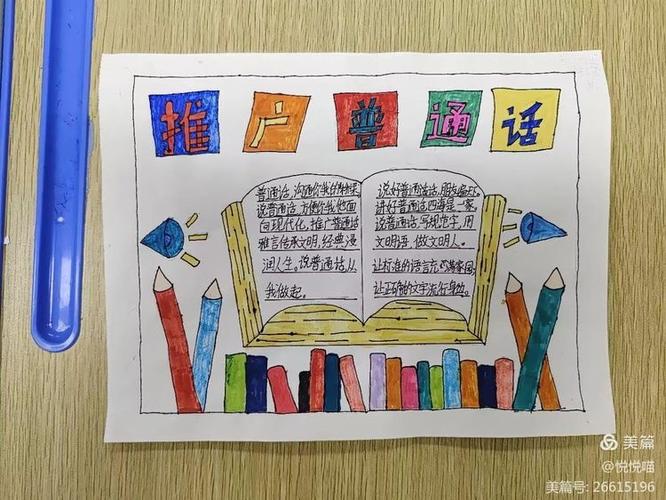 推广普通话
普通话,沟通你我的
说普通话,方便你我他面
向现代化,推广普通话
雅言传承文明,经典浸
润人生。说普通话,从
我做起。
说好普通话,朋友遍天下。
讲好普通话,四海是一家。
说普通话,写规范字,用
文明语,做文明人。
让标准的语言充满家园,
让正确的文字流行身边。
美篇
@悦悦喵
美篇号: 26615196